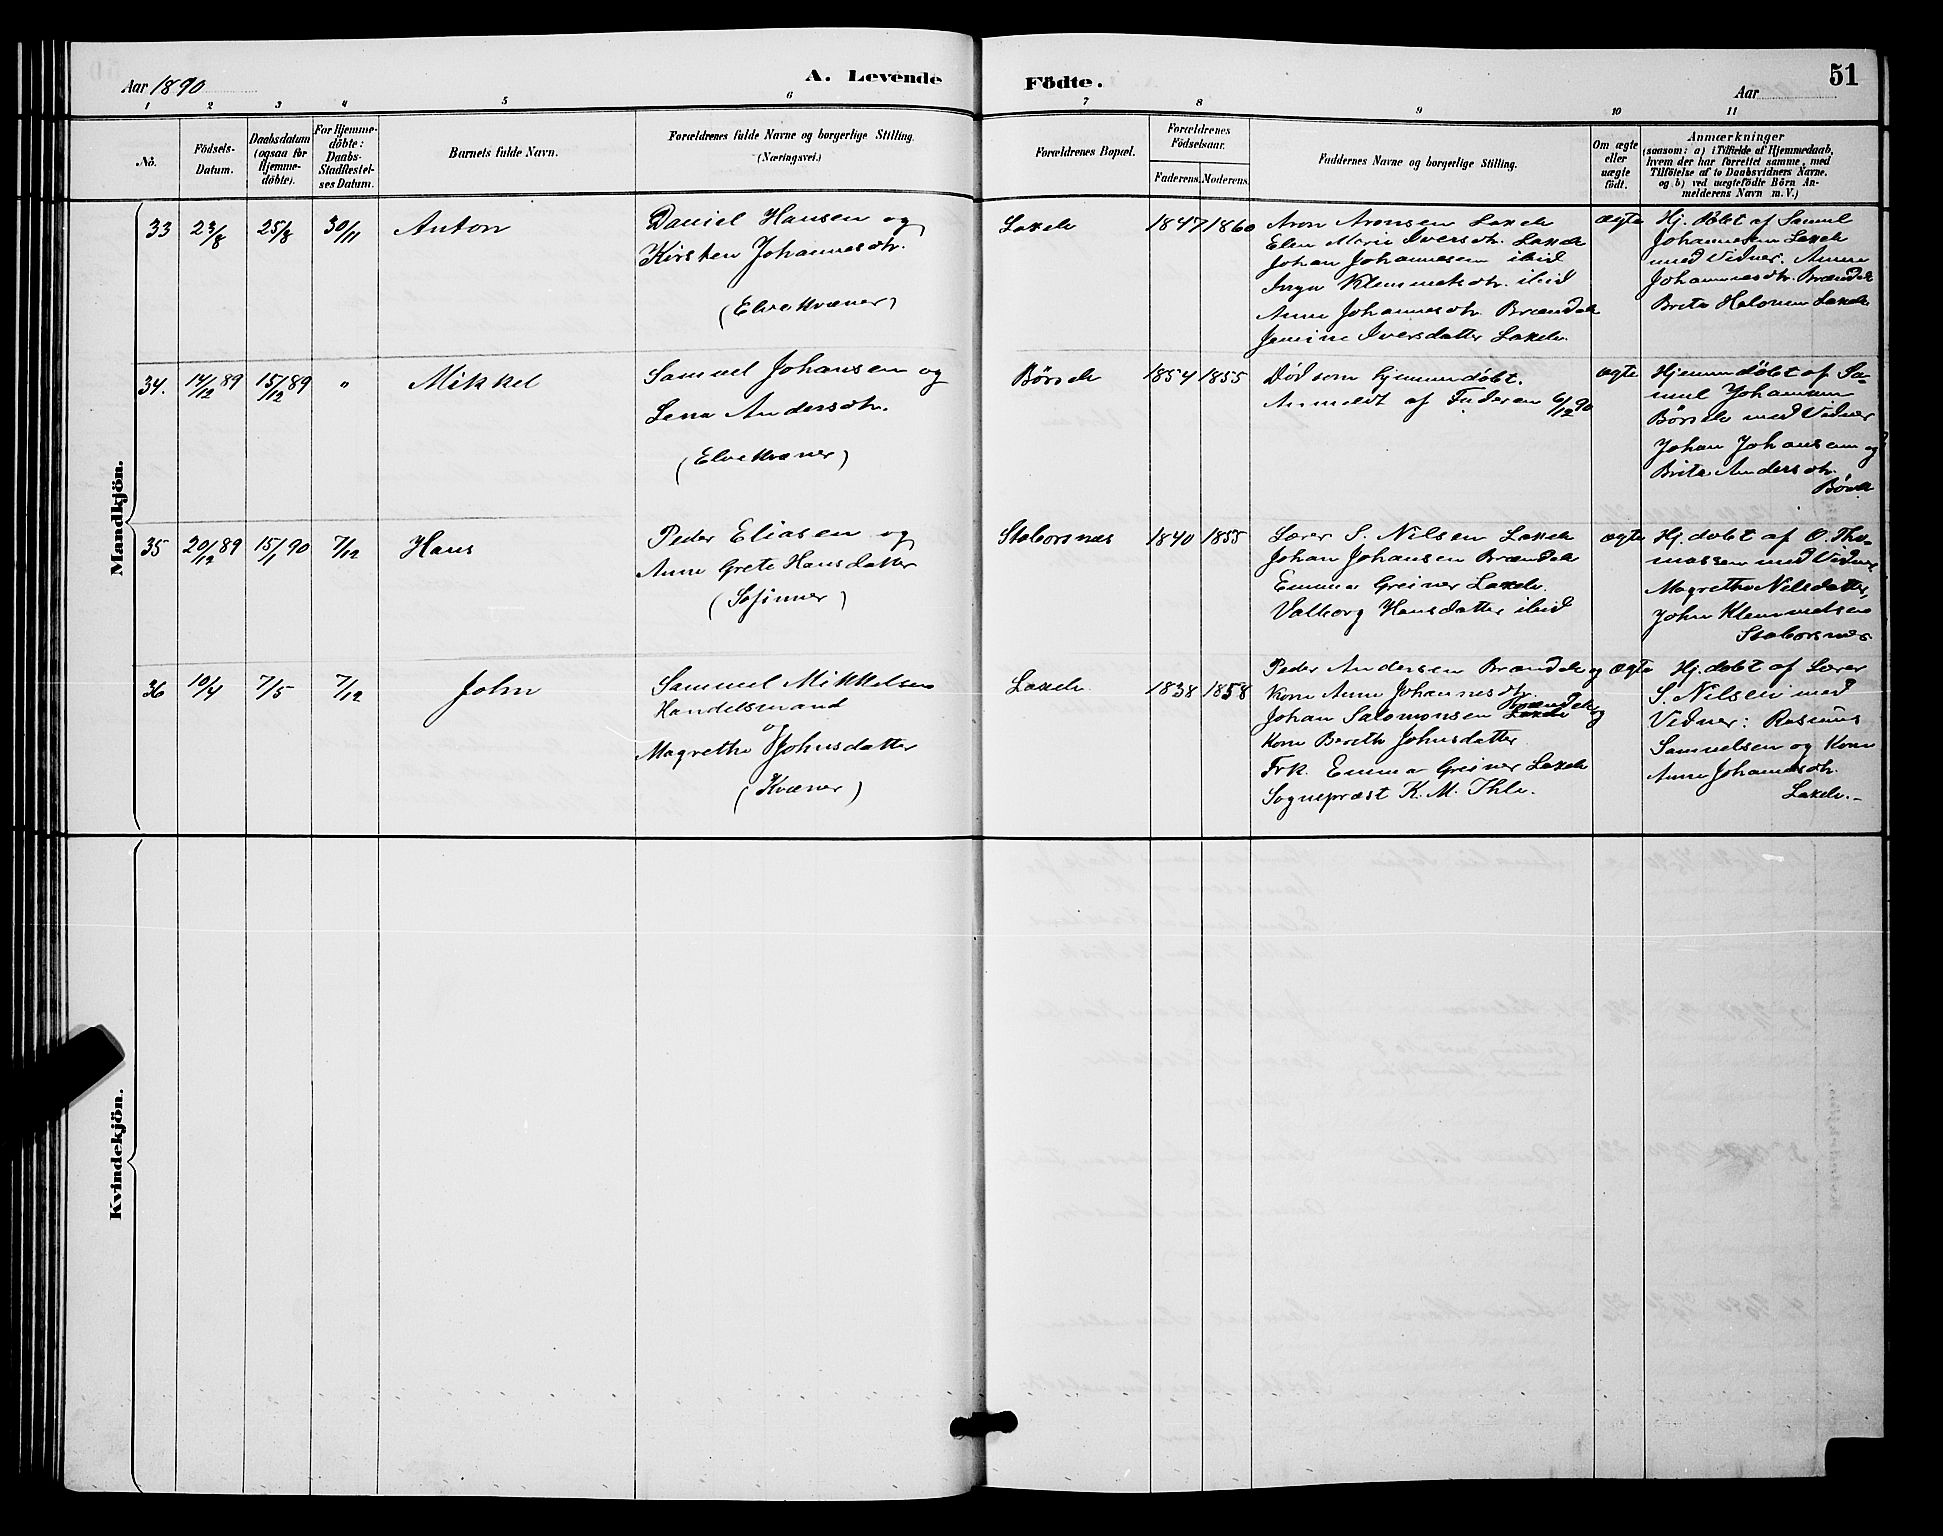 Aar 1890
A. Levende
Födte.
Aar
51
1 2 3 4 5 6 7 8 9 10 11
No.
Födsels-
Datum.
Daabsdatum
(ogsaa for
Hjemme-
döbte).
For Hjemme-
döbte:
Daabs-
Stadfæstel-
ses Datum.
Barnets fulde Navn.
Forældrenes fulde Navne og borgerlige Stilling.
(Næringsvei.)
Forældrenes Bopæl.
Forældrenes
Födselsaar.
Faderens. Moderens.
Faddernes Navne og borgerlige Stilling.
Om ægte
eller
uægte
födt.
Anmærkninger
(saasom: a) i Tilfælde af Hjemmedaab,
hvem der har forrettet samme, med
Tilföielse af to Daabsvidners Navne.
og b) ved uægtefödte Börn An-
melderens Navn m. V.)
Mandkjön.
33
23/8
25/8
30/11
Anton
Daniel Hansen og
Kirsten Johannesdtr.
(Elvekvæner)
Laxelv
1847
1860
Aron Aronsen Laxelv
Elen Marie Iversdtr. Laxelv
Johan Johannesen ibid
Inga Klemmetsdtr. ibid
Anne Johannesdtr Brændelv
Jensine Iversdatter Laxelv.
ægte
Hj. döbt af Samuel
Johannesen Laxelv
med Vidner. Anne
Johannesdtr. Brændelv
Brita Halonen Laxelv
34.
14/12 89
15/12 89
"
Mikkel
Samuel Johansen og
Lena Andersdtr.
(Elvekvæner)
Börselv
1854
1855
Död som hjemmedöbt.
Anmeldt af Faderen 6/12 90
ægte
Hjemmedöbt af Sa-
muel Johannsen
Börselv med Vidner
Johan Johansen og
Brita Andersdtr.
Börselv
35
20/12 89
15/1 90
7/12
Hans
Peder Eliasen og
Anne Grete Hansdatter
(Söfinner)
Staborsnes
1840
1855
Lærer S. Nilsen Laxelv
Johan Johansen Brændelv
Emma Greiner Laxelv.
Valborg Hansdatter ibid
ægte
Hj. döbt af O. Tho-
massen med Vidner
Magrethe Nilsdatter,
John Klemmetsen
Staborsnes
36
10/4
7/5
7/12
John
Samuel Mikkelsen
Handelsmand
og
Magrethe Johnsdatter
(Kvæner)
Laxelv
1838
1858
Peder Andersen Brændelv og
Kone Anne Johannesdtr.
Brændelv
Johan Salomonsen Laxelv og
Kone Bereth Johnsdatter
Frk. Emma Greiner Laxelv
Sognepræst K. M. Ihle.
ægte
Hj. döbt af Lærer
S. Nilsen med
Vidner: Rasmus
Samuelsen og Kone
Anne Johannesdtr.
Laxelv.-
Kvindekjön.